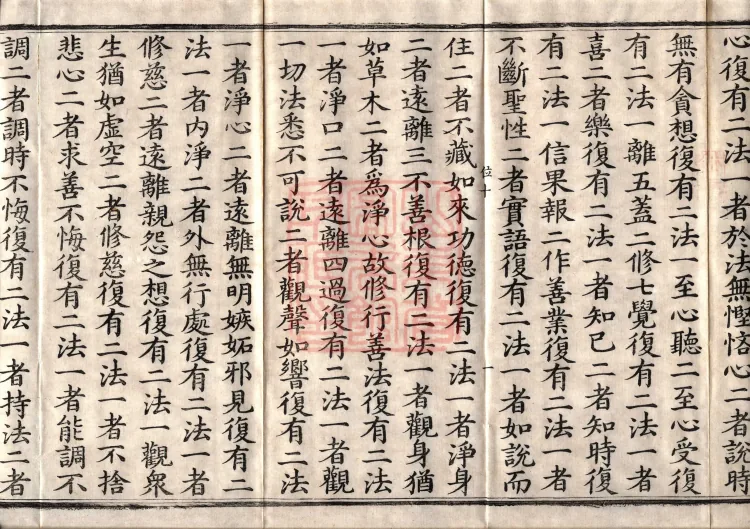 心復有二法一者於法無慳悋心二者說時
無有貪想復有二法一至心聽二至心受復
有二法一離五蓋二修七覺復有二法一者
喜二者樂復有二法一者知已二者知時復
有二法一信果報二作善業復有二法一者
不斷聖性二者實語復有二法一者如說而
住二者不藏如來功德復有二法一者淨身
二者遠離三不善根復有二法一者觀身猶
如草木二者為淨心故修行善法復有二法
一者淨口二者遠離四過復有二法一者觀
一切法悉不可說二者觀聲如響復有二法
一者淨心二者遠離無明嫉妬邪見復有二
法一者內淨二者外無行處復有二法一者
修慈二者遠離親怨之想復有二法一觀衆
生猶如虛空二者修慈復有二法一者不捨
悲心二者求善不悔復有二法一者能調不
調二者調時不悔復有二法一者持法二者
位十
一